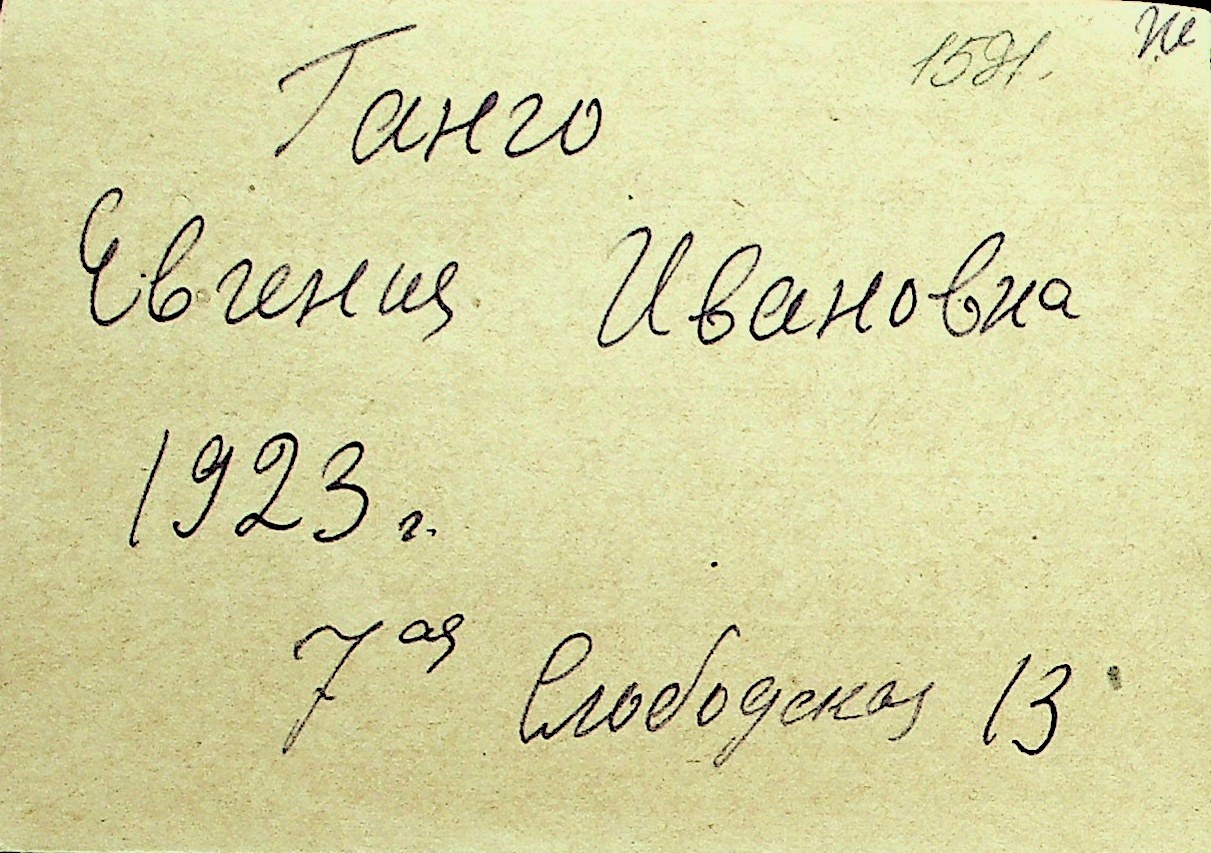 1591.
Ганго
Евгения Ивановна
1923 г.
7ая Слободская 13